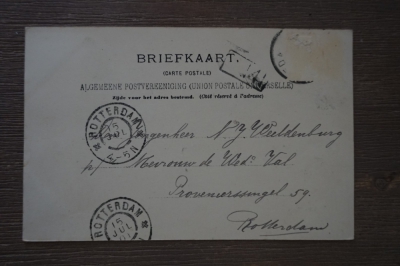 BRIEFKAART.
(CARTE POSTALE)
ALGEMEENE POSTVEREENIGING (UNION POSTALE UNIVERSELLE)
Zijde voor het adres bestemd. (Côté réservé à l'adresse)
ROTTERDAM
15 JUL
4-5N
N. J.
p/ Mevrouw de Wed. Val
59.
Rotterdam
ROTTERDAM
15
JUL